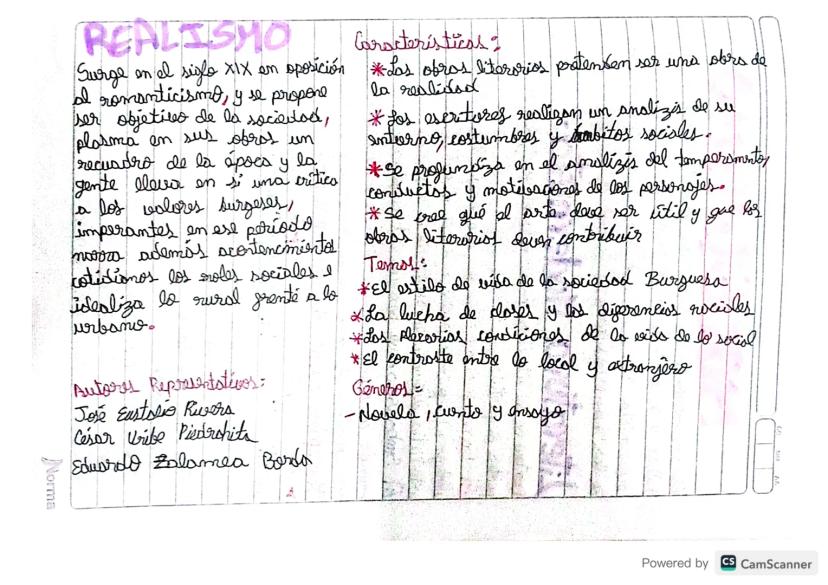 REALISMO
Surge en el siglo XIX en oposición
al romanticismo, y se propone
ser objetivo de la sociedad,
plasma en sus obras un
recuadro de la época y la
gente lleva en si una crítica
a los valores burgeses,
imperantes en ese período
narra además acontencimientos
cotidianos los roles sociales e
idealiza lo rural frente a lo
urbano.
Autores Representativos:
José Eustasio Rivera
César Uribe Piedrahita
Eduardo Zalamea Borda
Características:
*Las obras literarias pretenden ser una obra de
la realidad
*Los escritores realizan un analizis de su
entorno, costumbres y habitos sociales.
*Se profundiza en el analizis del temperamento,
conductas y motivaciones de los personajes.
*Se cree qué el arte deve ser útil y que las
obras literarias deven contribuir
Temas:
*El estilo de vida de la sociedad Burguesa
*La lucha de clases y las diferencias sociales
*Las precarias condiciones de la vida de lo social
*El contraste entre lo local y extranjero
Géneros=
-Novela, cuento y ensayo
Norma
Powered by CS CamScanner